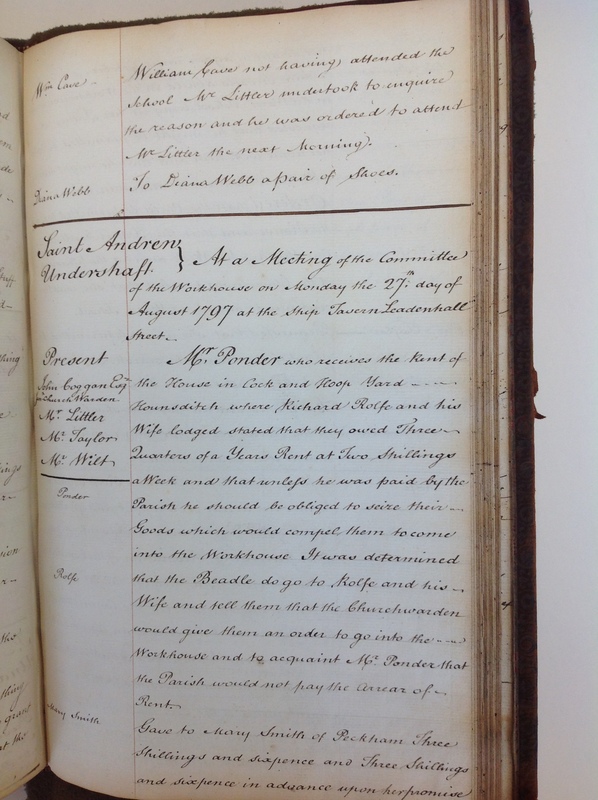 Wm Cave
William Cave not having attended the
school Mr. Littler undertook to enquire
the reason and he was ordered to attend
Mr. Littler the next Morning.
Diana Webb
To Diana Webb a pair of Shoes.
Saint Andrew
Undershaft.
At a Meeting of the Committee
of the Workhouse on Monday the 27th. day of
August 1797 at the Ship Tavern Leadenhall
Street.
Present
John Coggan Esqr.
Church Warden.
Mr. Littler
Mr. Taylor
Mr. Wilt
Ponder
Mr. Ponder who receives the Rent of
the House in Cock and Hoop Yard
Hounsditch where Richard Rolfe and his
Wife lodged stated that they owed Three
Quarters of a Years Rent at Two Shillings
a Week and that unless he was paid by the
Parish he should be obliged to seize their
Goods which would compel them to come
into the Workhouse It was determined
Rolfe
that the Beadle do go to Rolfe and his
Wife and tell them that the Churchwarden
would give them an order to go into the
Workhouse and to acquaint Mr. Ponder that
the Parish would not pay the Arrear of
Rent.
Mary Smith
Gave to Mary Smith of Peckham Three
Shillings and sixpence and Three Shillings
and sixpence in advance upon her promise